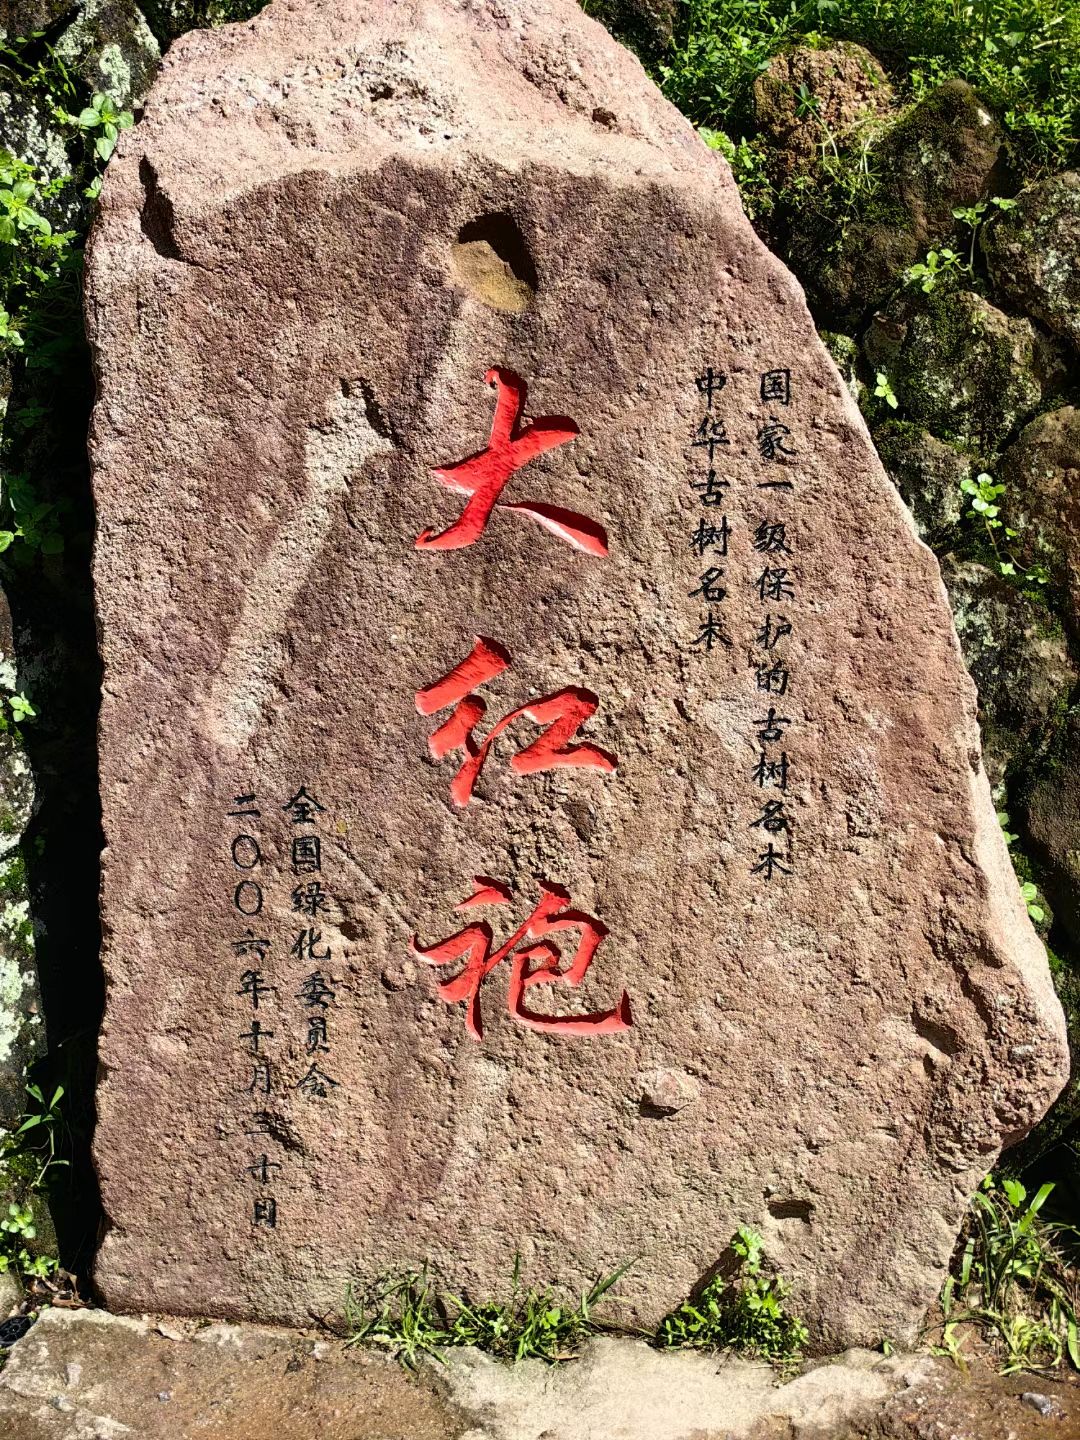 国家一级保护的古树名木
中华古树名木
大红袍
全国绿化委员会
二〇〇六年十月三十日